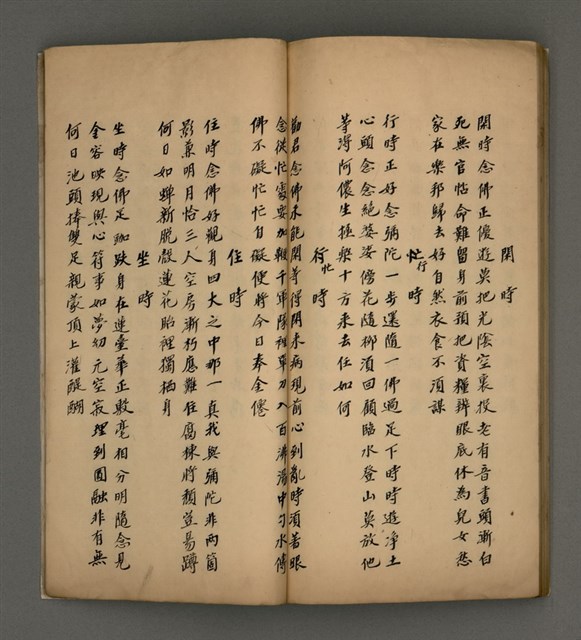 閑時
閑時念佛正優遊莫把光陰空裏投老有音書頭漸白
死無官怙命難留身前預把資糧辨眼底休為兒女愁
家在樂邦歸去好自然衣食不須謀
忙行時
行時正好念彌陀一步還隨一佛過足下時時遊淨土
心頭念念絕娑婆傍花隨柳須回顧臨水登山莫放他
等得阿儂生極樂十方來去任如何
行忙時
勸君念佛未能閑等得閑來病現前心到亂時須著眼
念從忙處要加鞭千軍隊裡單刀入百沸湯中勺水傳
佛不礙忙忙自礙便將今日奉金僊
住時
住時念佛好觀身四大之中那一真我與彌陀非兩箇
影兼明月恰三人空房漸朽應難住腐棟將頹豈易蹲
何日如蟬新脫殼蓮花胎裡獨栖身
坐時
坐時念佛足跏趺身在蓮臺華正敷毫相分明隨念見
金容映現與心符事如夢幻元空寂理到圓融非有無
何日池頭捧雙足親蒙頂上灌醍醐